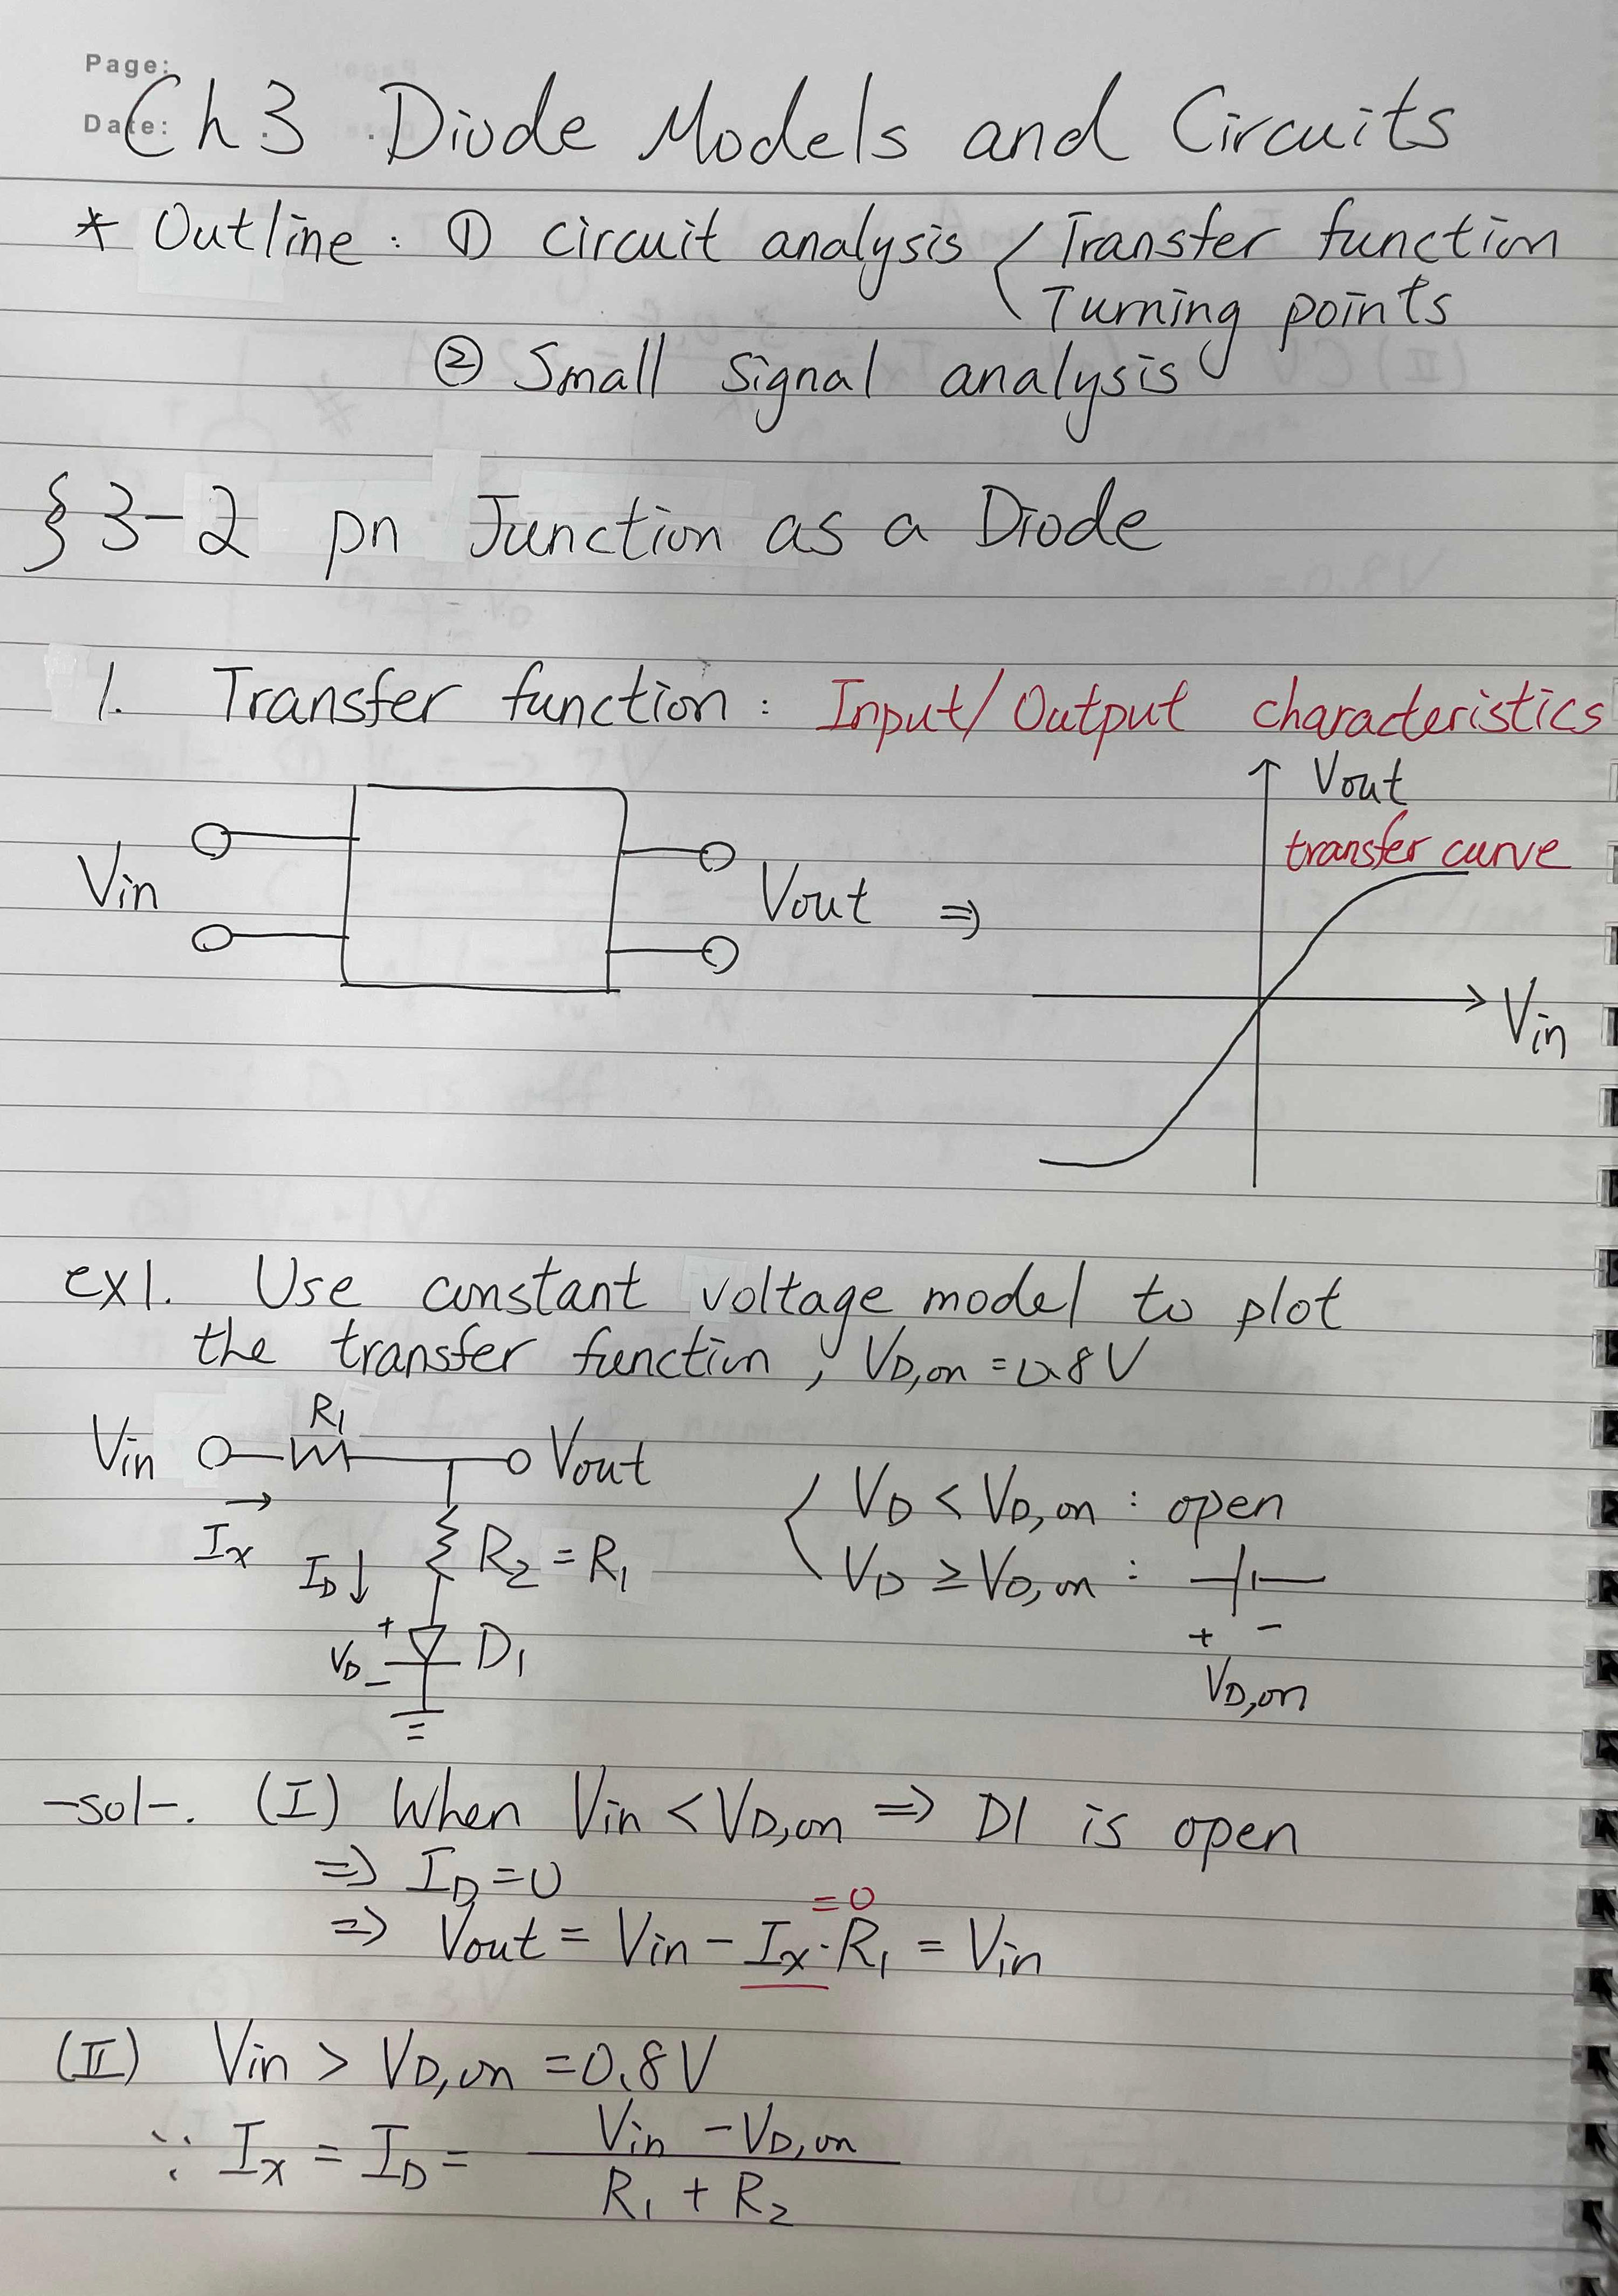 Page:
Date:
Ch3 Diode Models and Circuits
* Outline : ① circuit analysis < Transfer function
Turning points
② Small signal analysis
§ 3-2 pn Junction as a Diode
1. Transfer function : Input/Output characteristics
Vout
transfer curve
Vin
Vout ⇒
Vin
ex1. Use constant voltage model to plot
the transfer function, VD,on = 0.8V
R1
Vin
Vout
Ix
ID↓
R2 = R1
+
VD
-
D1
VD < VD,on : open
VD ≥ VD,on :
+ -
VD,on
-sol-. (I) When Vin < VD,on ⇒ D1 is open
⇒ ID = 0
= 0
⇒ Vout = Vin - Ix·R1 = Vin
(II) Vin > VD,on = 0.8V
∵ Ix = ID = Vin - VD,on
R1 + R2